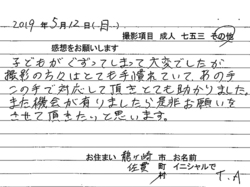 2019年5月12日(日)
撮影項目 成人 七五三 その他
感想をお願いします
子どもがぐずってしまって大変でしたが
撮影の方々はとても手慣れていて、あの手
この手で対応して頂きとても助かりました。
また機会が有りましたら是非お願いを
させて頂きたいと思います。
お住まい 龍ヶ崎 市 お名前
佐貫 町 イニシャルで
村 T.A